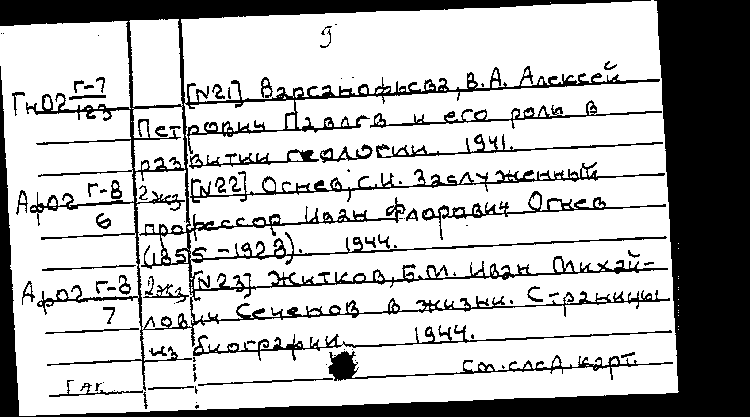 9
Гн02 Г-7/123 [N21]. Варсанофьева, В.А. Алексей
Петрович Павлов и его роль в
развитии геологии. 1941.
Аф02 Г-8/6 2жз [N22]. Огнев, С.И. Заслуженный
профессор Иван Флорович Огнев
(1855-1928). 1944.
Аф02 Г-8/7 2жз [N23]. Житков, Б.М. Иван Михай-
лович Сеченов в жизни. Страницы
из биографии. 1944.
см. след. карт.